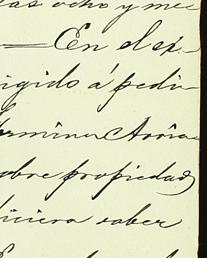 las ocho y me
— En el ex-
igido á pedi-
ermina Arria
sobre propiedad
iciera saber